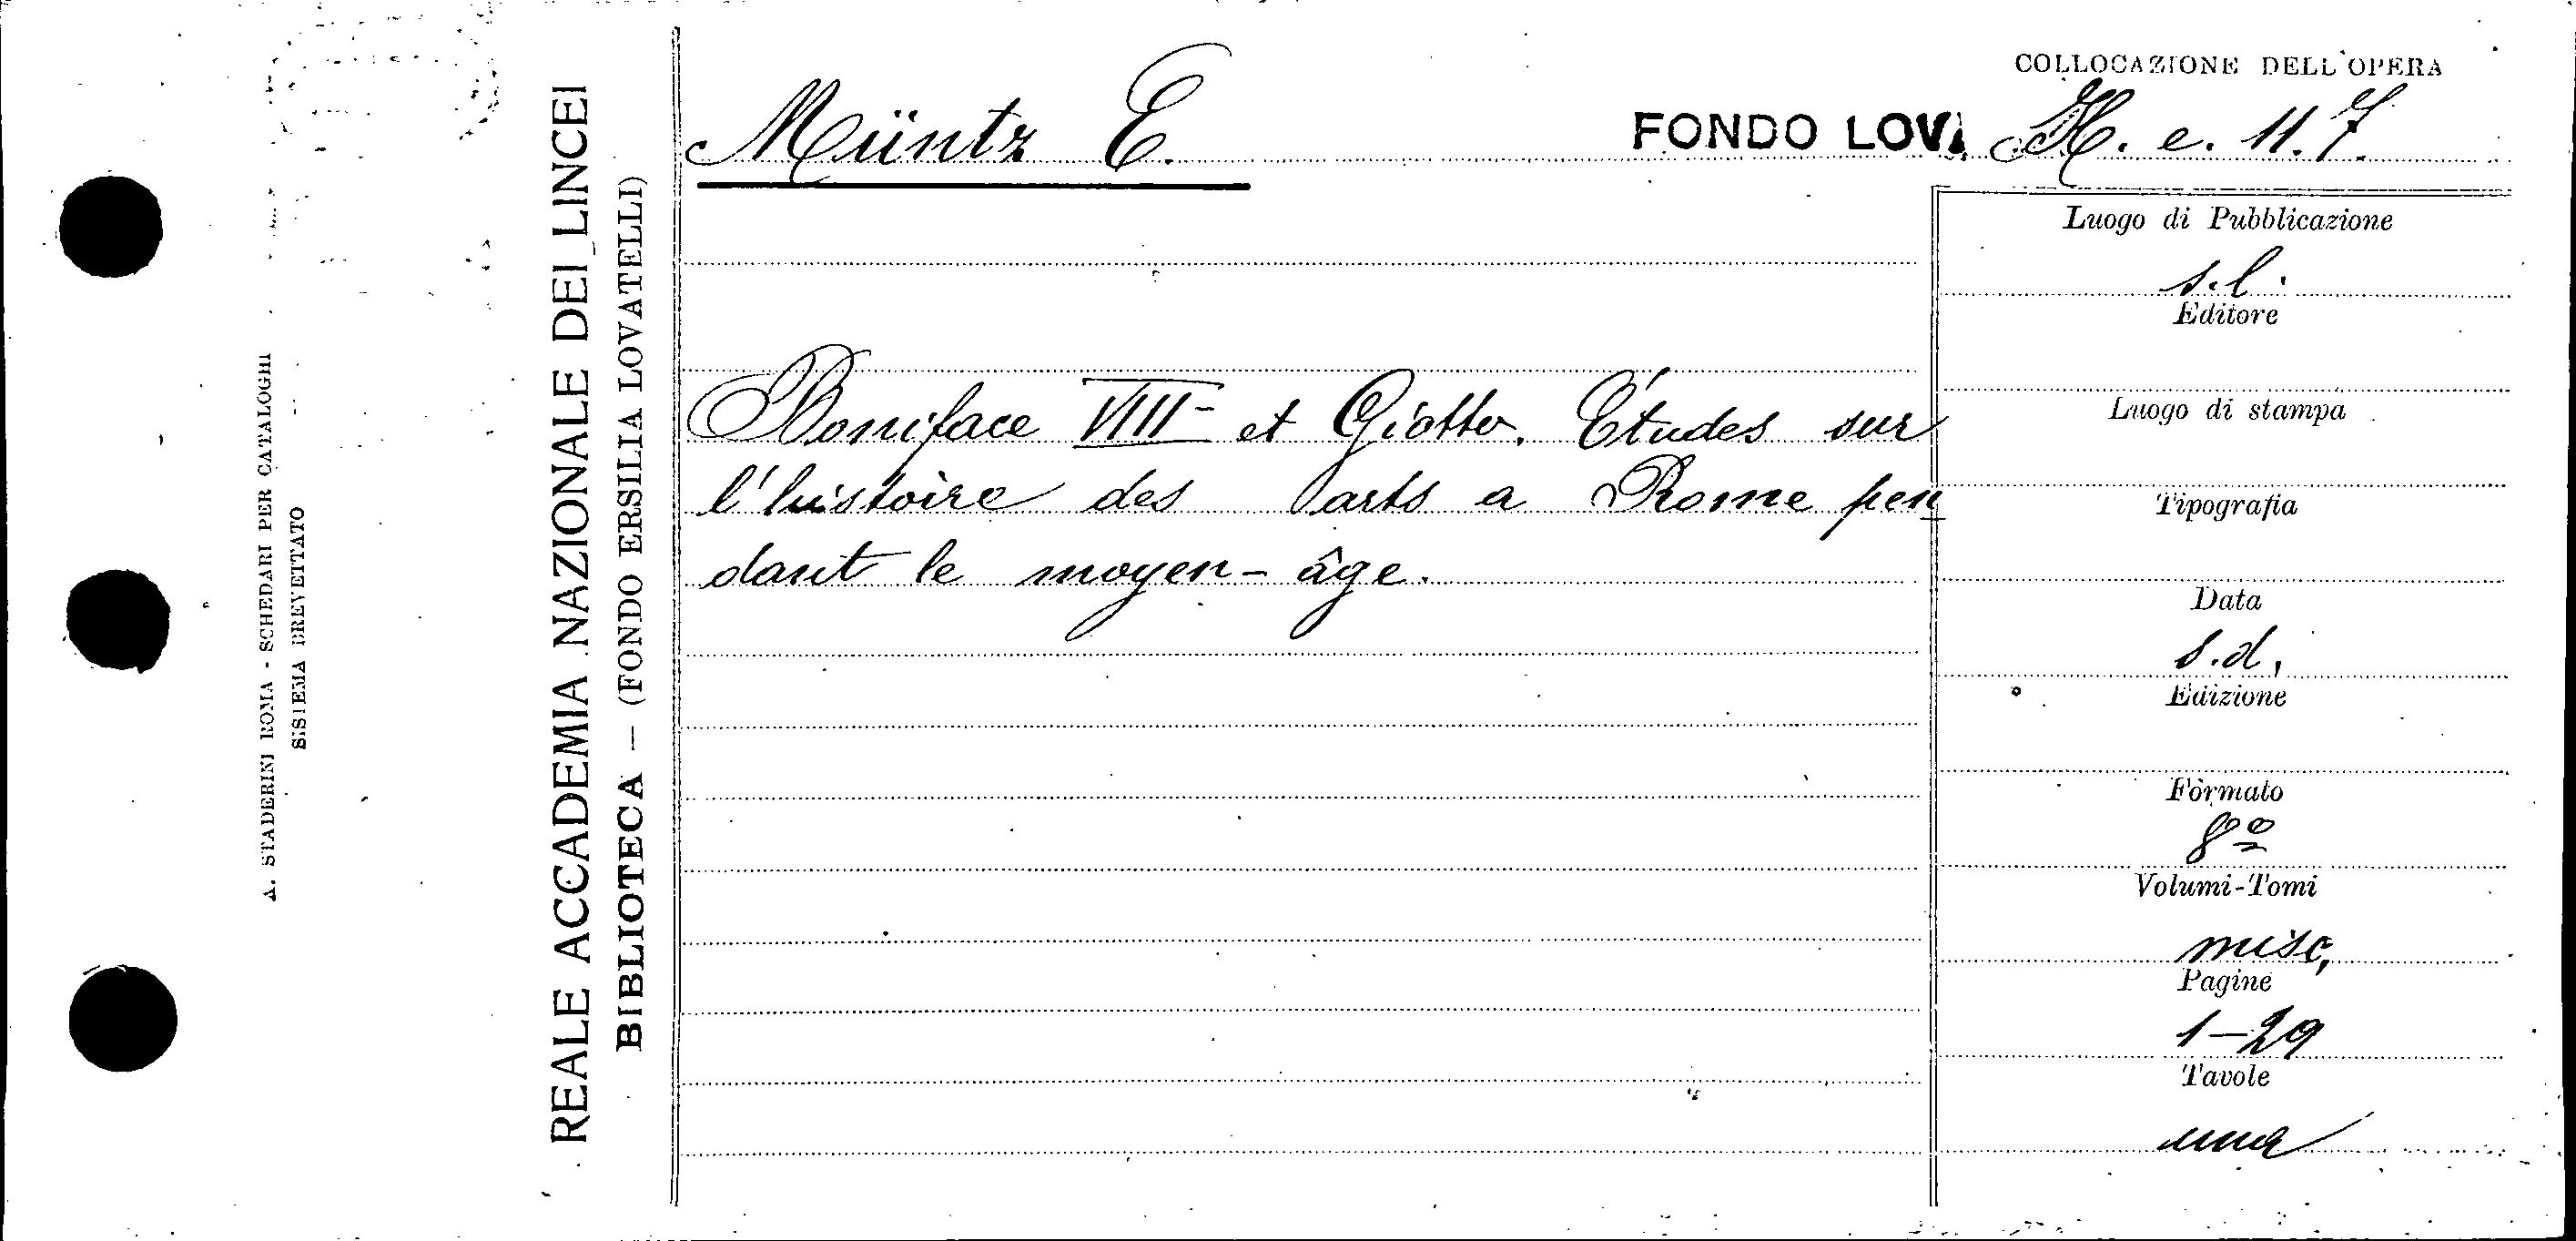 A. STADERINI ROMA - SCHEDARI PER CATALOGHI
SISTEMA BREVETTATO
REALE ACCADEMIA NAZIONALE DEI LINCEI
BIBLIOTECA — (FONDO ERSILIA LOVATELLI)
Müntz E.
FONDO LOVA
COLLOCAZIONE DELL'OPERA
H. e. 11. 7.
Boniface VIII et Giotto. Études sur
l'histoire des arts a Rome pen
dant le moyen-âge.
Luogo di Pubblicazione
s.l.
Editore
Luogo di stampa
Tipografia
Data
s.d.
Edizione
Formato
8º
Volumi-Tomi
misc.
Pagine
1-29
Tavole
una